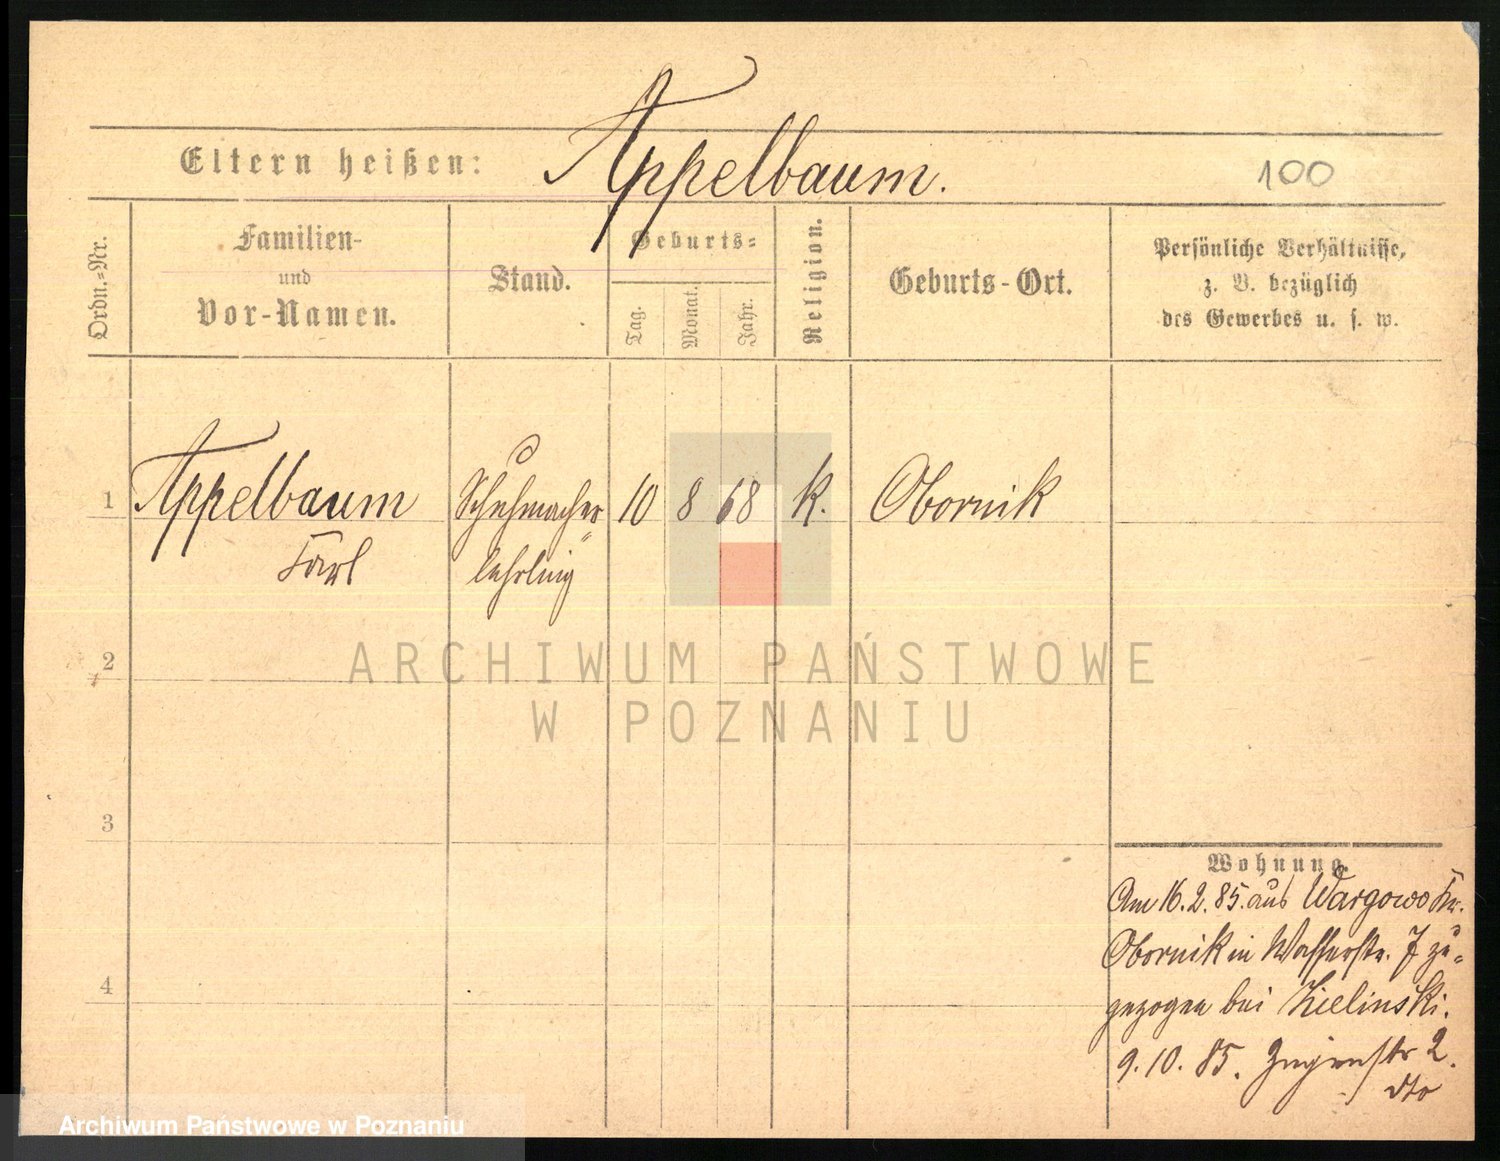 Eltern heißen: Appelbaum.
100
Ordn.-Nr.
Familien-
und
Vor-Namen.
Stand.
Geburts-
Tag.
Monat.
Jahr.
Religion.
Geburts-Ort.
Persönliche Verhältnisse,
z. B. bezüglich
des Gewerbes u. s. w.
1 Appelbaum Schuhmacher 10 8 68 k. Obornik
Karl lehrling
2
3
4
ARCHIWUM PAŃSTWOWE
W POZNANIU
Wohnung.
Am 16.2.85. aus Wargowo Kr.
Obornik in Wasserstr. 7 zu-
gezogen bei Zielinski.
9.10.85. 2.
dto
Archiwum Państwowe w Poznaniu